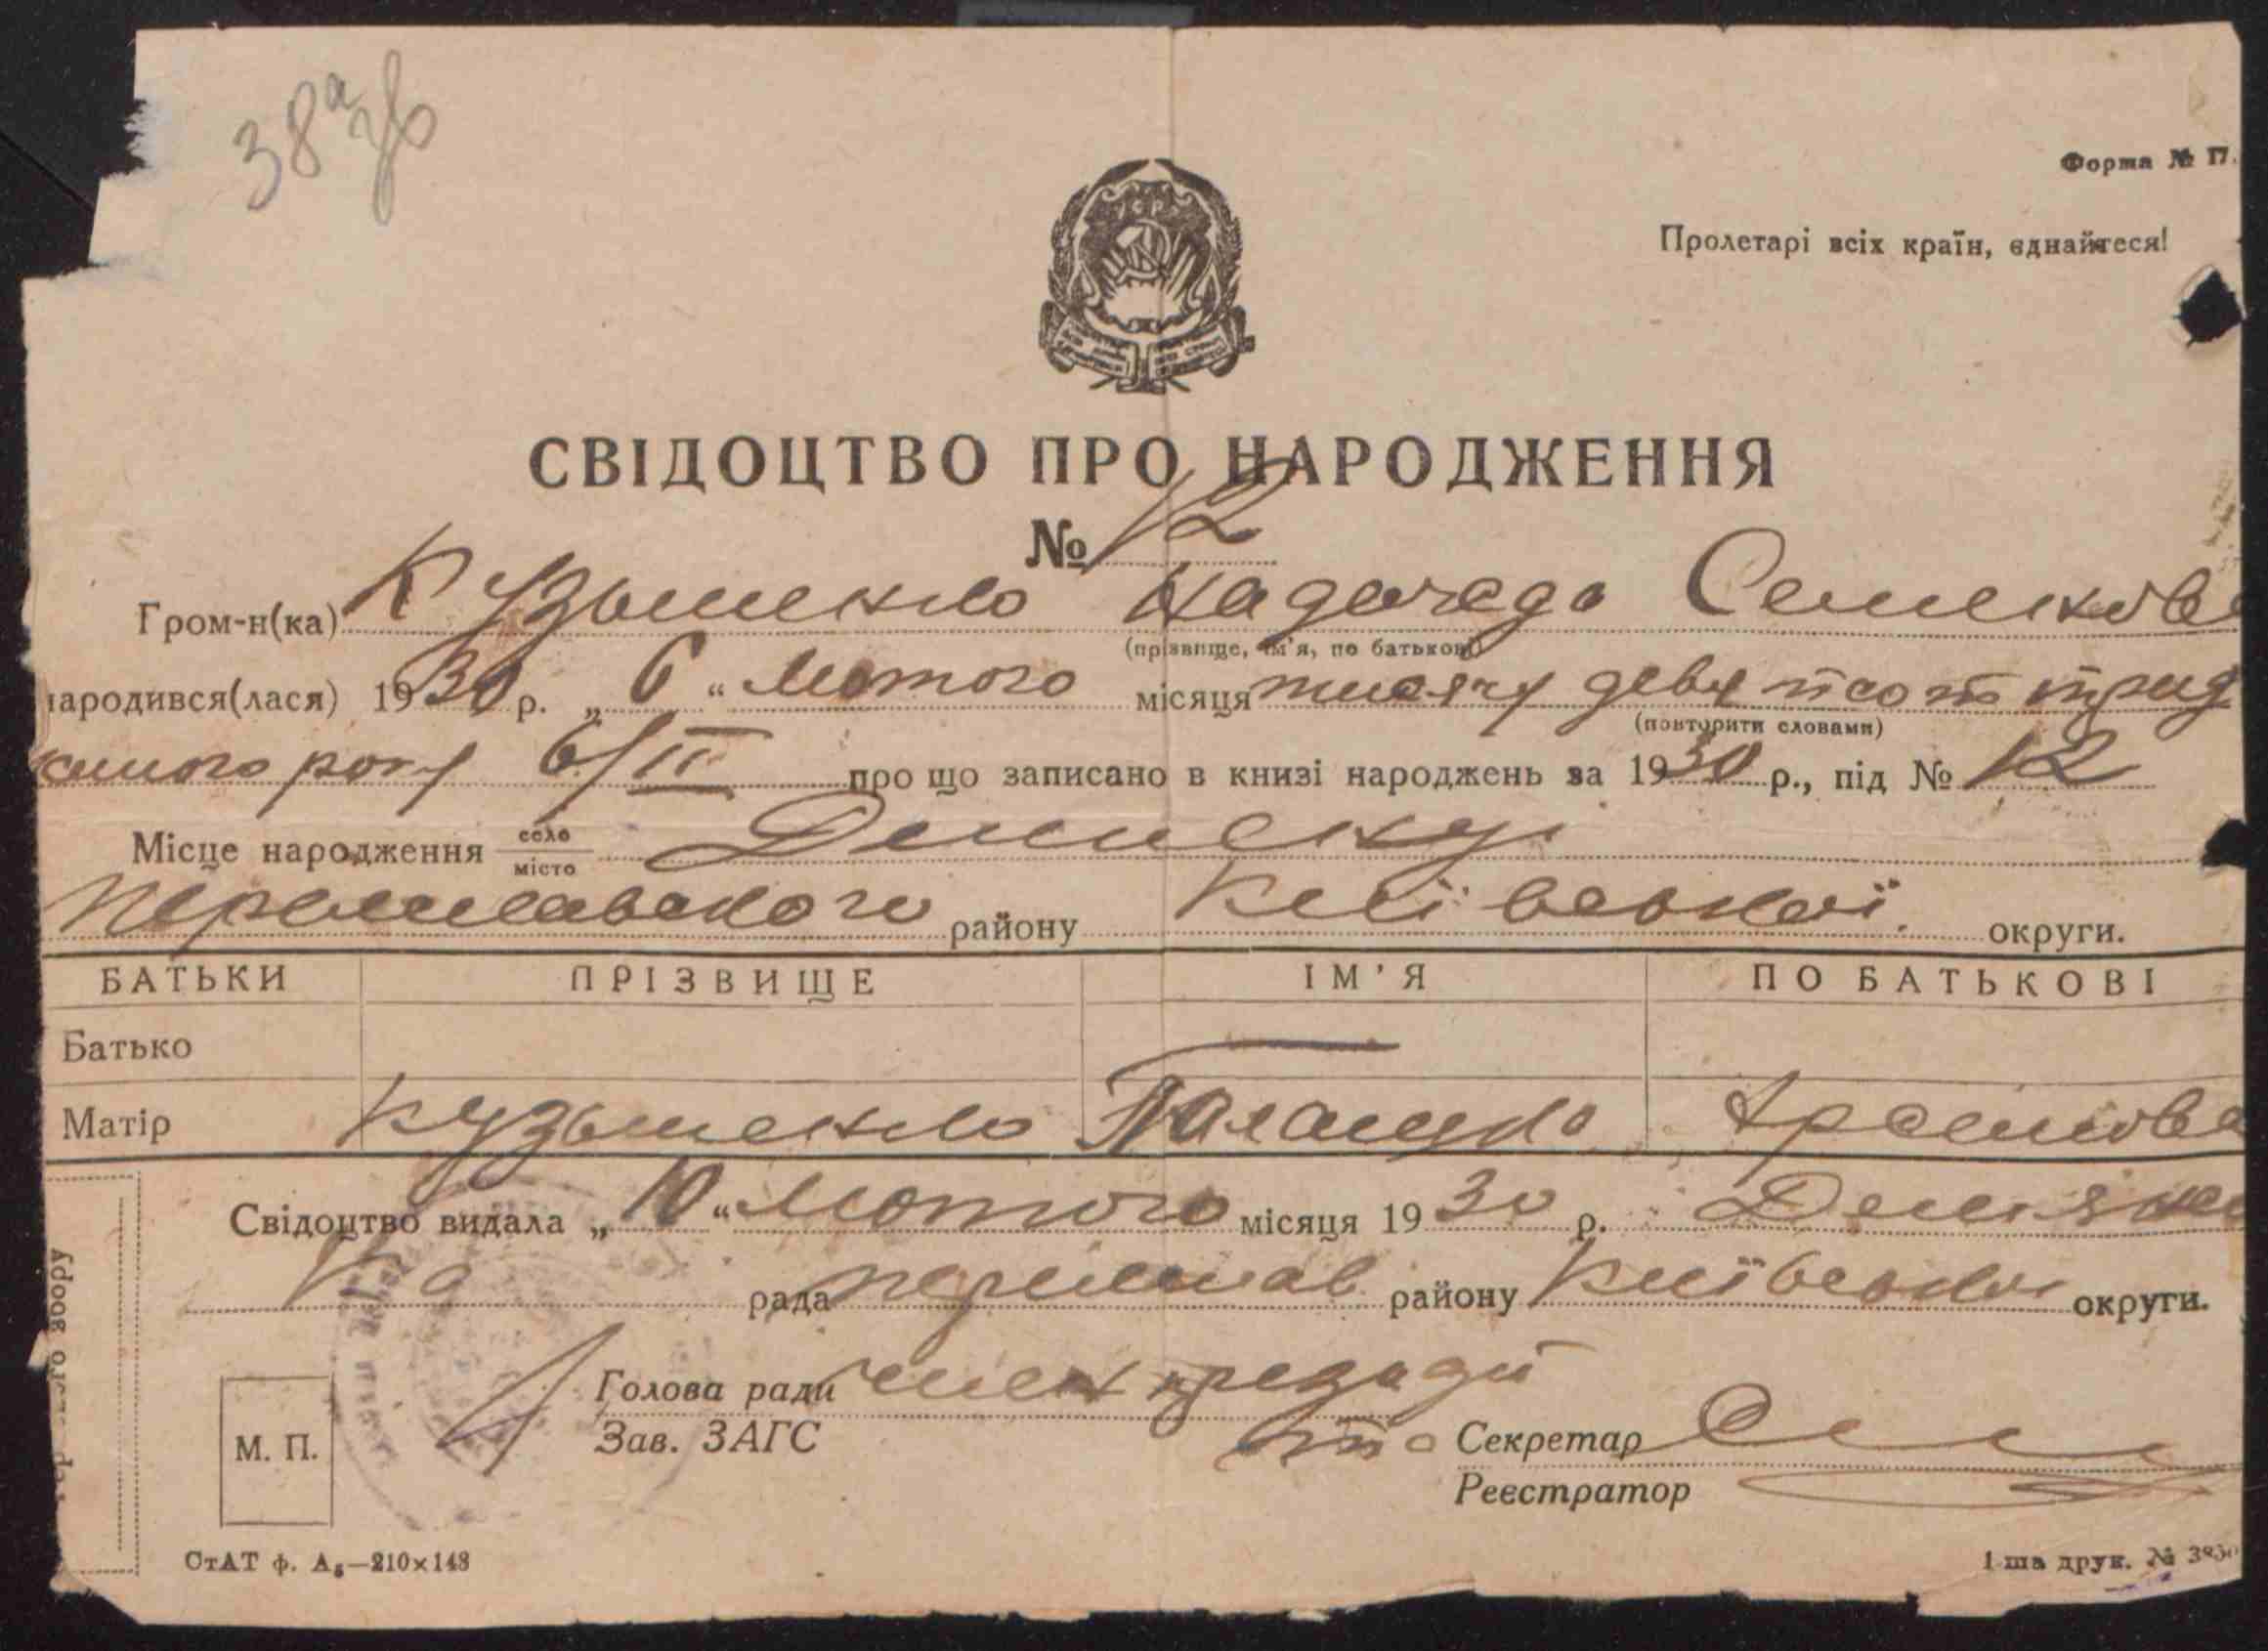 38а
Форма № 17.
Пролетарі всіх країн, єднайтеся!
СВІДОЦТВО ПРО НАРОДЖЕННЯ
№ 12
Гром-н(ка) Кузьменко Надежда Семенова
(прізвище, ім'я, по батькові)
народився(лася) 1930 р. „6“ Лютого місяця тисячу девятсот трид
(повторити словами)
року 6/II про що записано в книзі народжень за 1930 р., під № 12
Місце народження село
місто Деменці
Переяславського району Київської округи.
БАТЬКИ ПРІЗВИЩЕ ІМ'Я ПО БАТЬКОВІ
Батько —
Матір Кузьменко Палашка
Свідоцтво видала „10“ Лютого місяця 1930 р. Демян
ка рада переяслав району Київської округи.
Голова ради член президії
Зав. ЗАГС
Секретар
Реєстратор
М. П.
СтАТ ф. А₅—210×148
1-ша друк. №